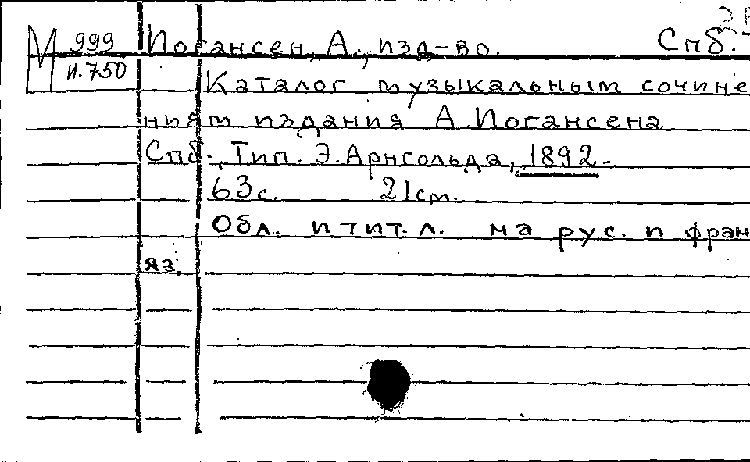 М 999 Иогансен, А., изд-во. Спб.
и.750
Каталог музыкальным сочине
ниям издания А.Иогансена
Спб., Тип. Э.Арнгольда, 1892.
63 с. 21 см.
Обл. и тит.л. на рус. и фран
яз.